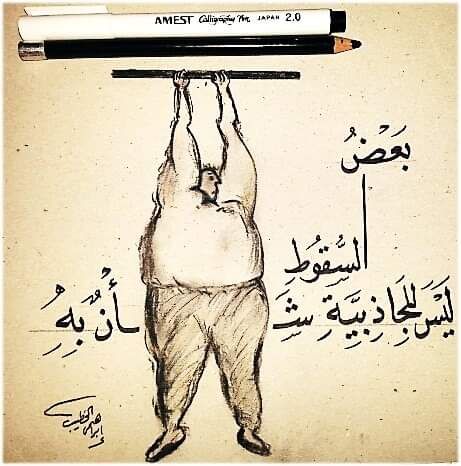 AMEST Calligraphy Pen JAPAN 2.0
بَعْضُ
السُّقُوطِ
لَيْسَ لِلجَاذِبيَّةِ شَأنٌ بِهِ
إبراهيم الخطيب